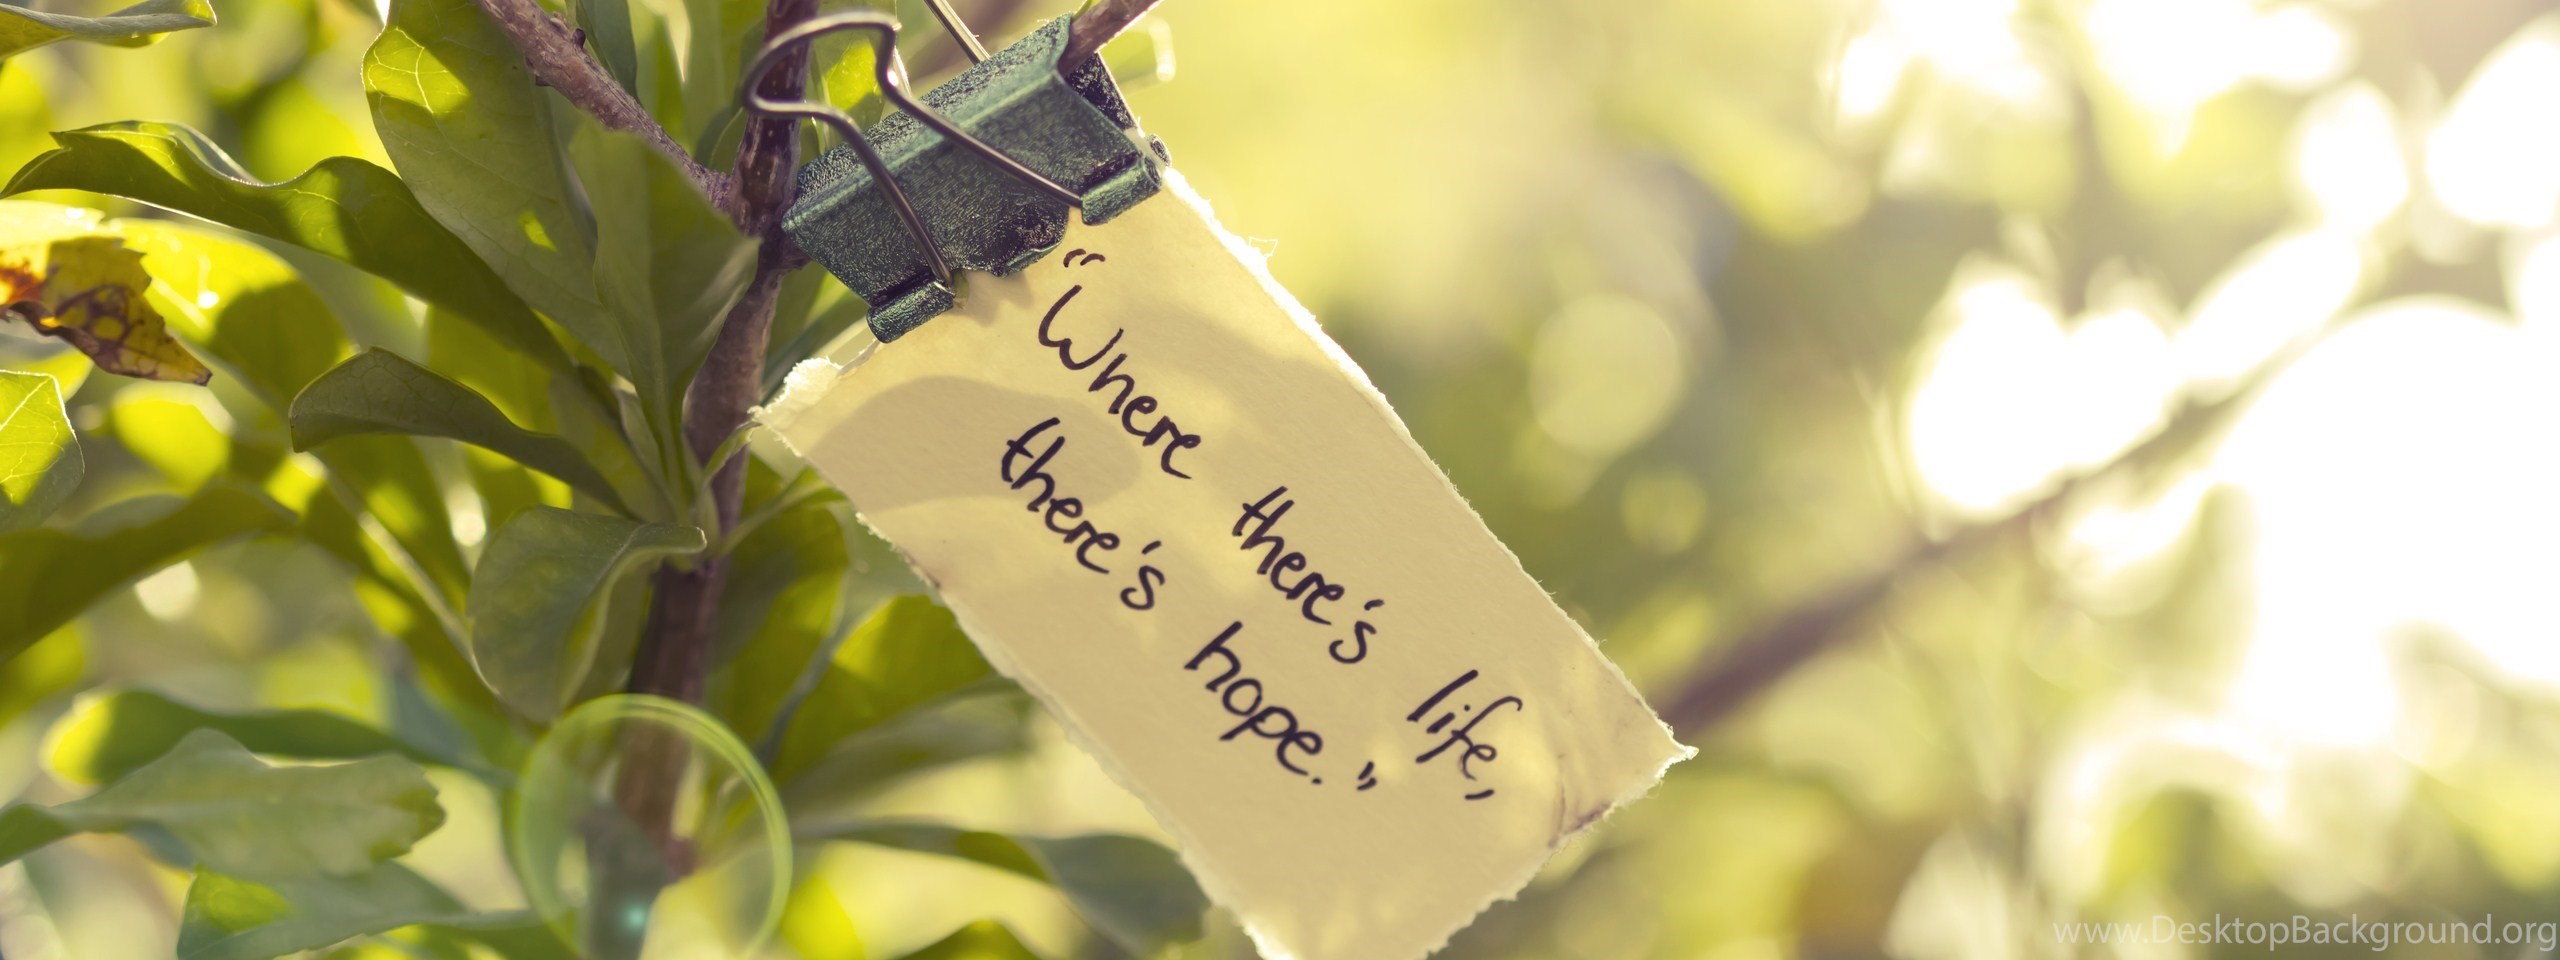 “Where there's life,
there's hope.”
www.DesktopBackground.org